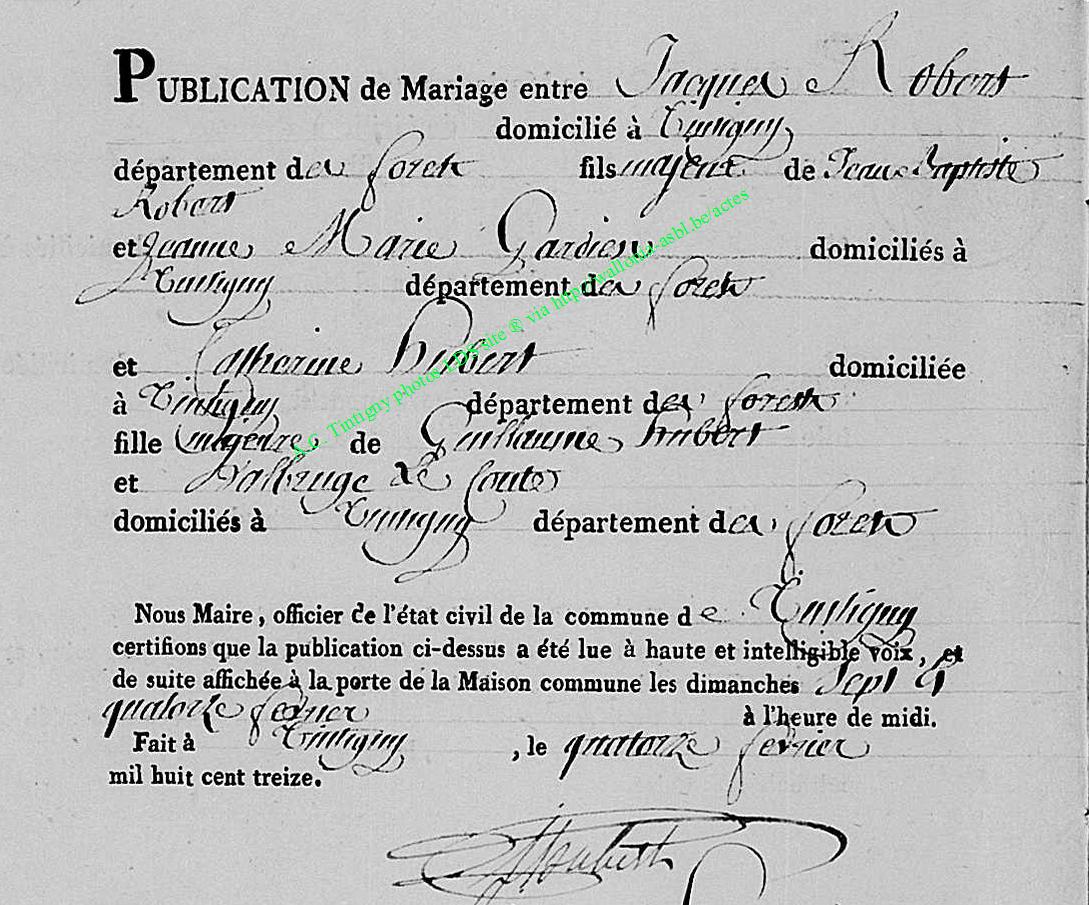 PUBLICATION de Mariage entre Jacques Robert
domicilié à Tintigny
département des forets fils majeur de Jean Baptiste
Robert
et Jeanne Marie Gardien domiciliés à
Tintigny département des forets
et Catherine hubert domiciliée
à Tintigny département des forets
fille majeure de Guillaume hubert
et Walbruge
domiciliés à Tintigny département des forets
Nous Maire, officier de l'état civil de la commune de Tintigny
certifions que la publication ci-dessus a été lue à haute et intelligible voix, et
de suite affichée à la porte de la Maison commune les dimanches Sept et
quatorze fevrier à l'heure de midi.
Fait à Tintigny, le quatorze fevrier
mil huit cent treize.
A.C. Tintigny photos LDS site ® via http://wallonia-asbl.be/actes